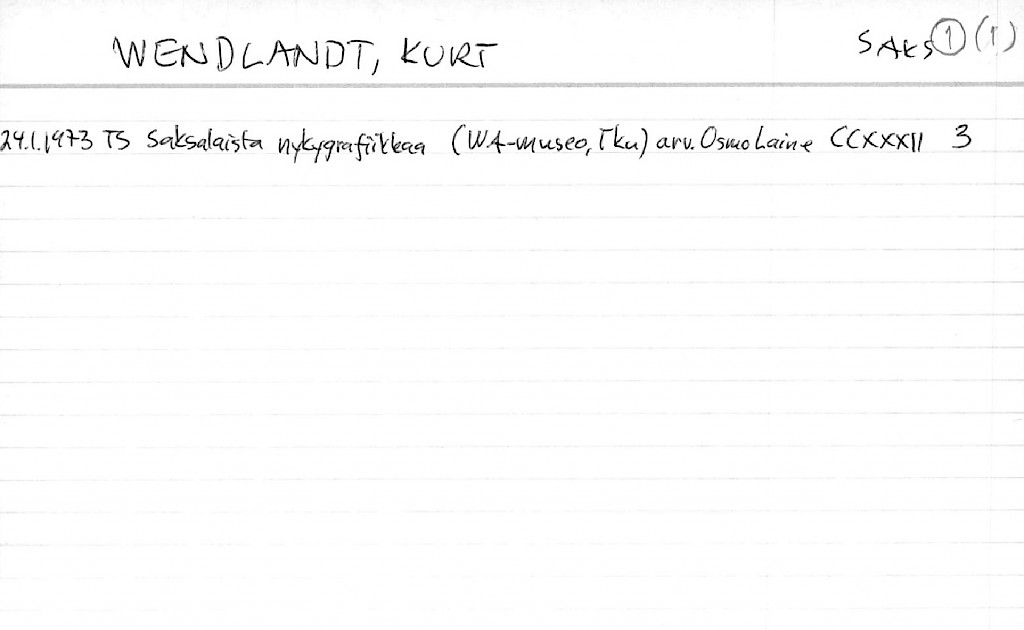 WENDLANDT, KURT SAKS ① (1)
24.1.1973 TS Saksalaista nykygrafiikkaa (WA-museo, Tku) arv. Osmo Laine CCXXXII 3